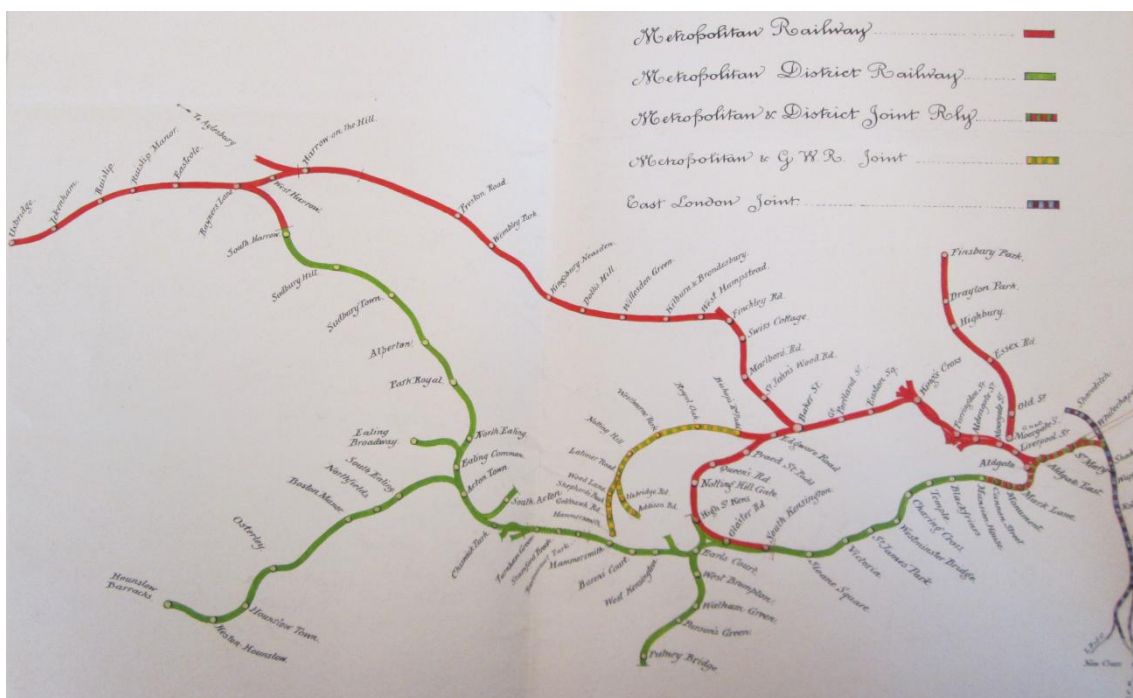 Metropolitan Railway
Metropolitan District Railway
Metropolitan & District Joint Rly
Metropolitan & G W R Joint
East London Joint.
To Aylesbury
Uxbridge.
Ickenham.
Ruislip.
Ruislip Manor.
Eastcote.
Rayners Lane
West Harrow.
Harrow-on-the Hill.
Preston Road
Wembley Park
Kingsbury Neasden
Dollis Hill.
Willesden Green.
Kilburn & Brondesbury.
West Hampstead.
Finchley Rd.
Swiss Cottage.
Marlboro Rd.
St John's Wood Rd.
Baker St.
Gt. Portland St.
Euston Sq.
King's Cross
Farringdon St.
Aldersgate St.
Moorgate St.
Finsbury Park.
Drayton Park.
Highbury.
Essex Rd.
Old St
Moorgate St.
Liverpool St.
Aldgate
Shoreditch.
St Marys
Aldgate East.
Mark Lane.
Monument.
Cannon Street.
Mansion House.
Blackfriars
Temple
Charing Cross
Westminster Bridge.
St James Park.
Victoria.
Sloane Square.
South Kensington.
Gloster Rd
High St Kens
Notting Hill Gate
Queen's Rd.
Praed St Padd
Edgware Road
Royal Oak
Westbourne Park
Notting Hill
Latimer Road
Wood Lane
Shepherds Bush
Goldhawk Rd.
Hammersmith
Uxbridge Rd
Addison Rd.
South Harrow
Sudbury Hill.
Sudbury Town.
Alperton.
Park Royal.
North Ealing
Ealing Broadway
Ealing Common.
Acton Town
South Acton
South Ealing
Northfields
Boston Manor
Osterley
Hounslow Town.
Heston-Hounslow.
Hounslow Barracks
Chiswick Park
Turnham Green
Stamford Brook
Ravenscourt Park
Hammersmith
Barons Court
West Kensington
Earls Court.
West Brompton.
Walham Green.
Parson's Green.
Putney Bridge
New Cross